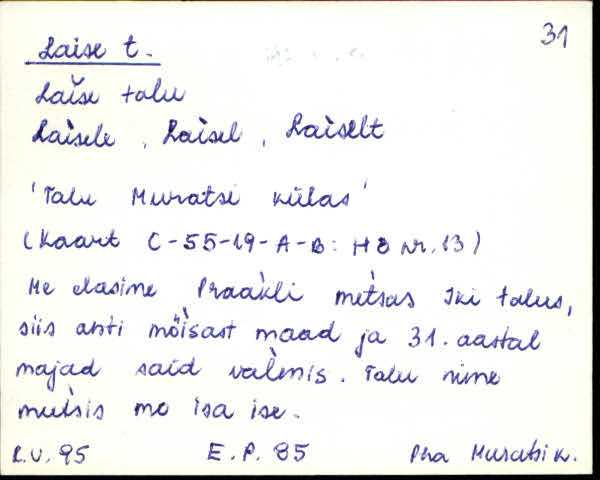 31
Laise t.
Laise talu
Laisele, Laisel, Laiselt
'Talu Muratsi külas'
(Kaart C-55-19-A-B: HB nr. 13)
Me elasime Praakli metsas Iki talus,
siis anti mõisast maad ja 31. aastal
majad said valmis. Talu nime
mõtsis mo isa ise.
R.V. 95 E.P. 85 Pha Muratsi k.